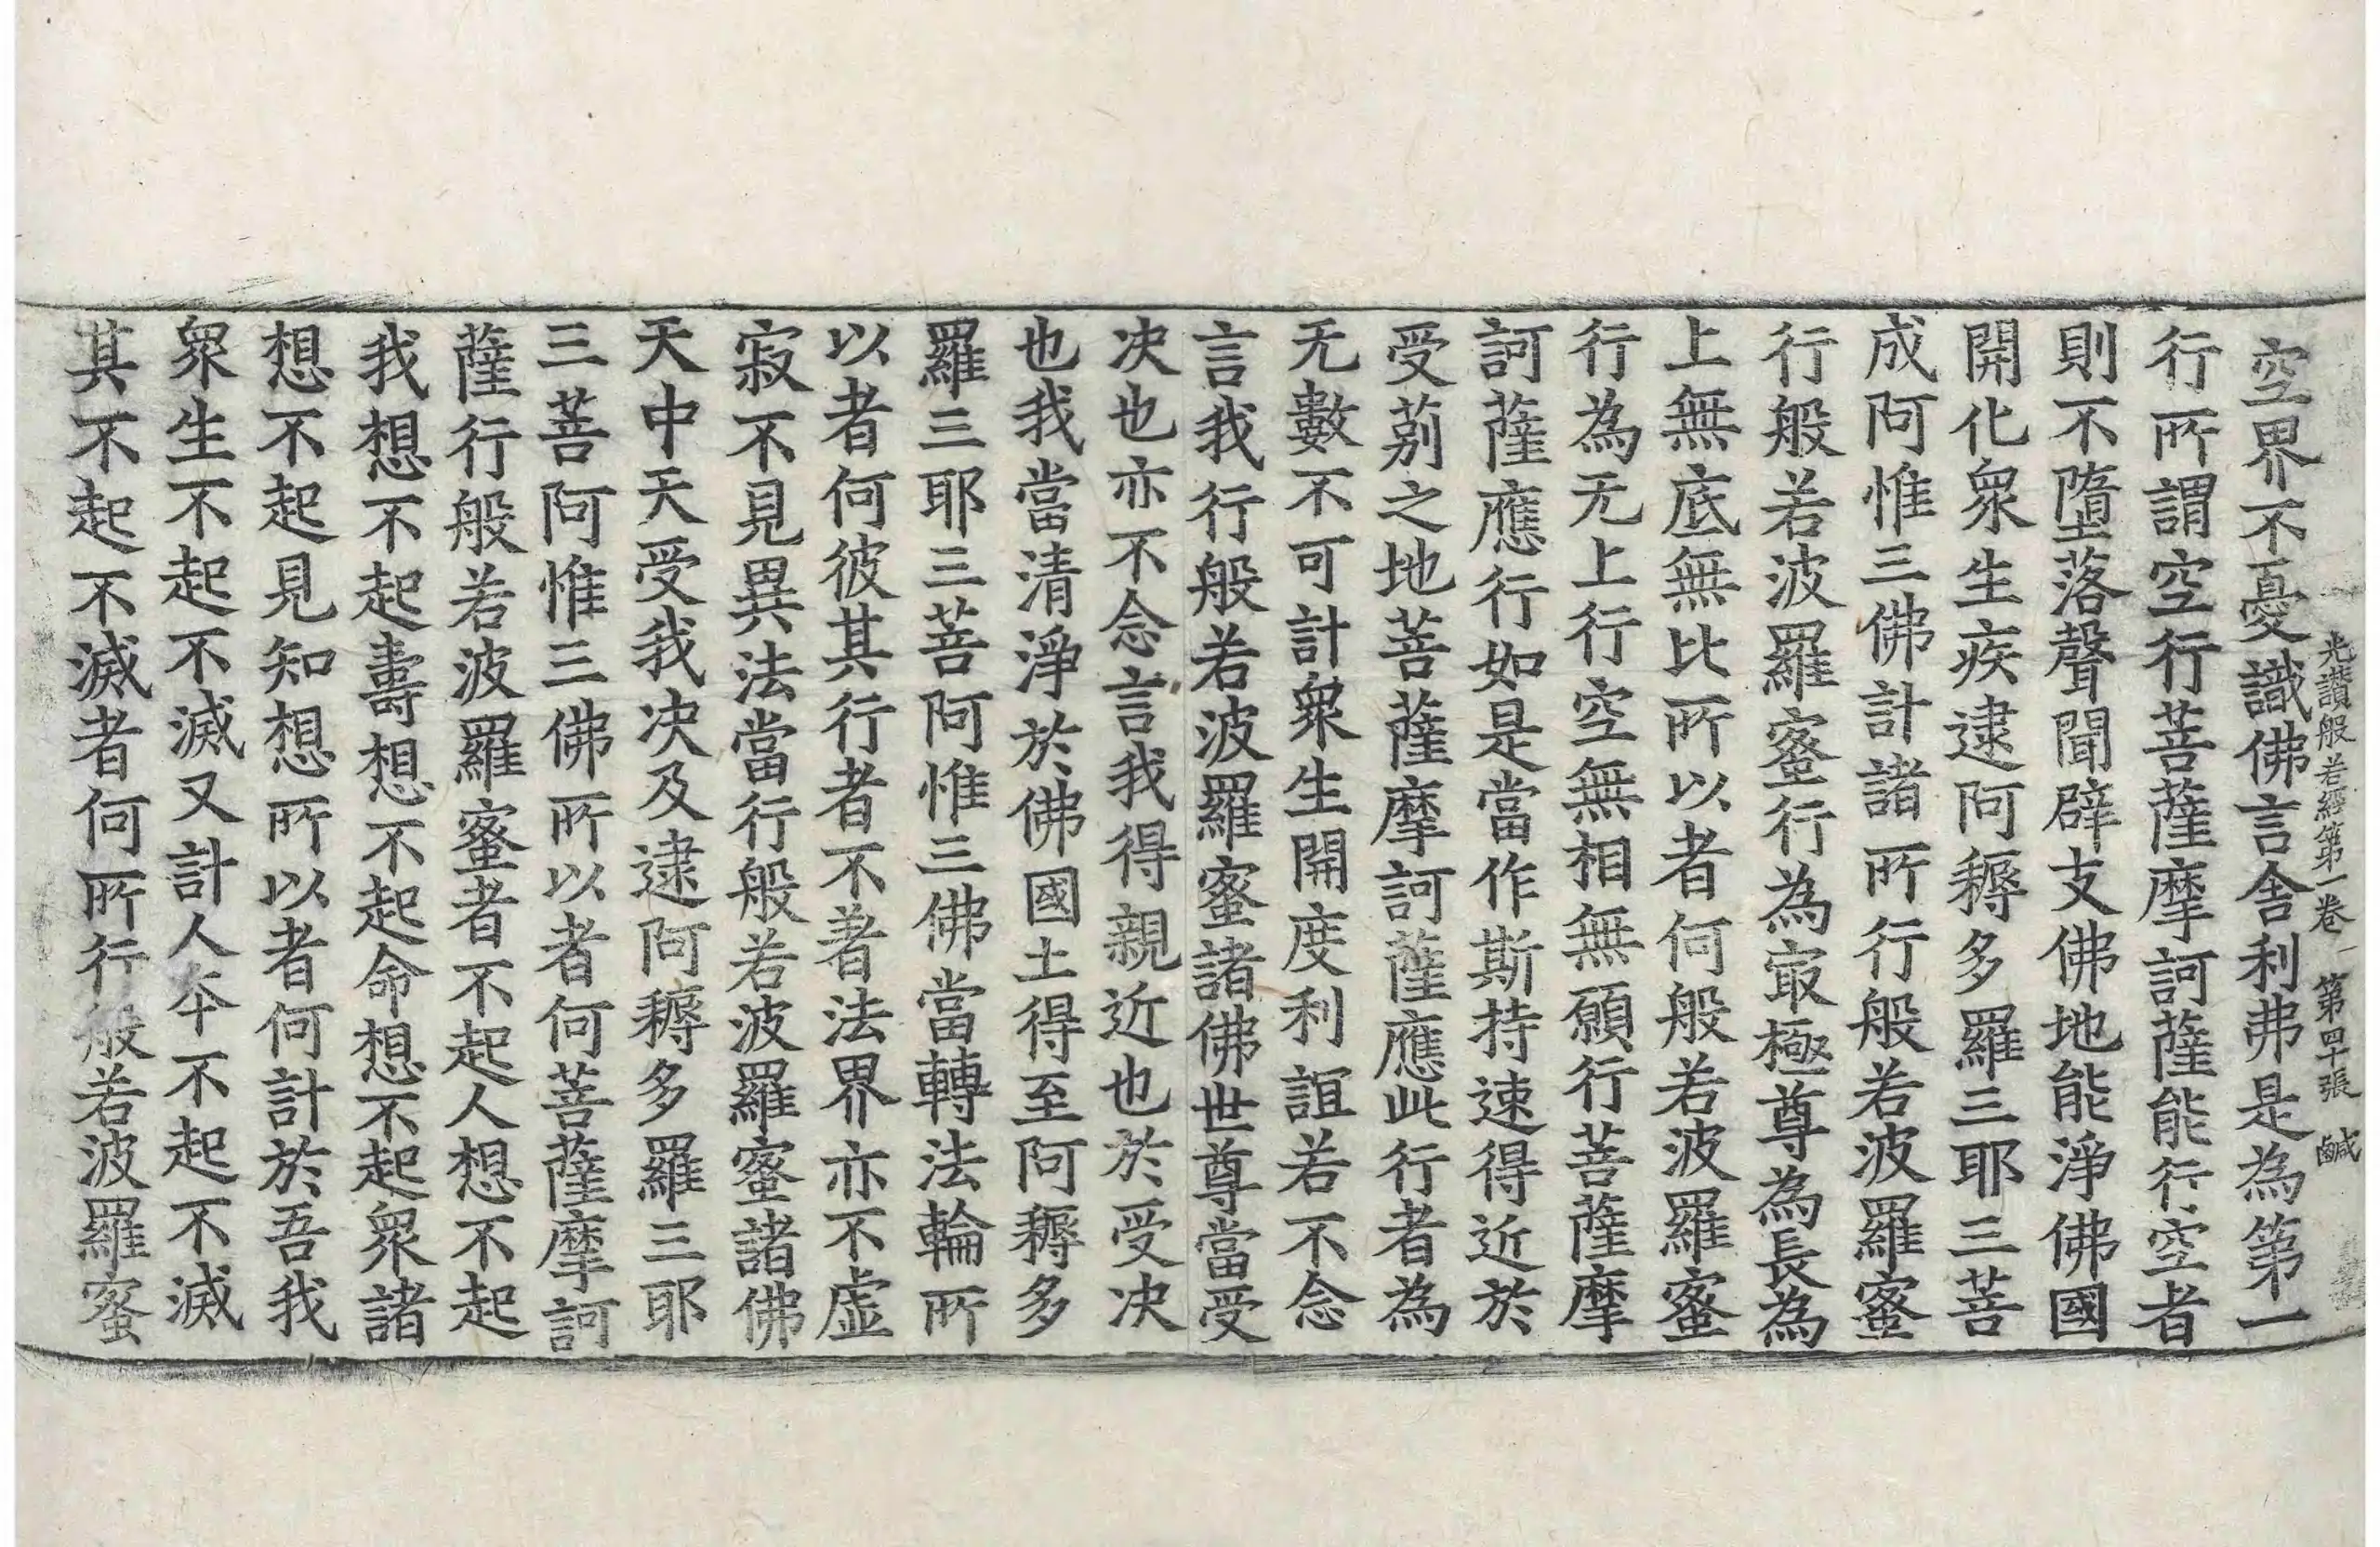 光讚般若經第一卷 第四十張 鹹
空界不憂識佛言舍利弗是為第一
行所謂空行菩薩摩訶薩能行空者
則不墮落聲聞辟支佛地能淨佛國
開化衆生疾逮阿耨多羅三耶三菩
成阿惟三佛計諸所行般若波羅蜜
行般若波羅蜜行為冣極尊為長為
上無底無比所以者何般若波羅蜜
行為无上行空無相無願行菩薩摩
訶薩應行如是當作斯持速得近於
受莂之地菩薩摩訶薩應此行者為
无數不可計衆生開度利誼若不念
言我行般若波羅蜜諸佛世尊當受
决也亦不念言我得親近也於受决
也我當清淨於佛國土得至阿耨多
羅三耶三菩阿惟三佛當轉法輪所
以者何彼其行者不著法界亦不虛
寂不見異法當行般若波羅蜜諸佛
天中天受我决及逮阿耨多羅三耶
三菩阿惟三佛所以者何菩薩摩訶
薩行般若波羅蜜者不起人想不起
我想不起壽想不起命想不起衆諸
想不起見知想所以者何計於吾我
衆生不起不滅又計人夲不起不滅
其不起不滅者何所行般若波羅蜜